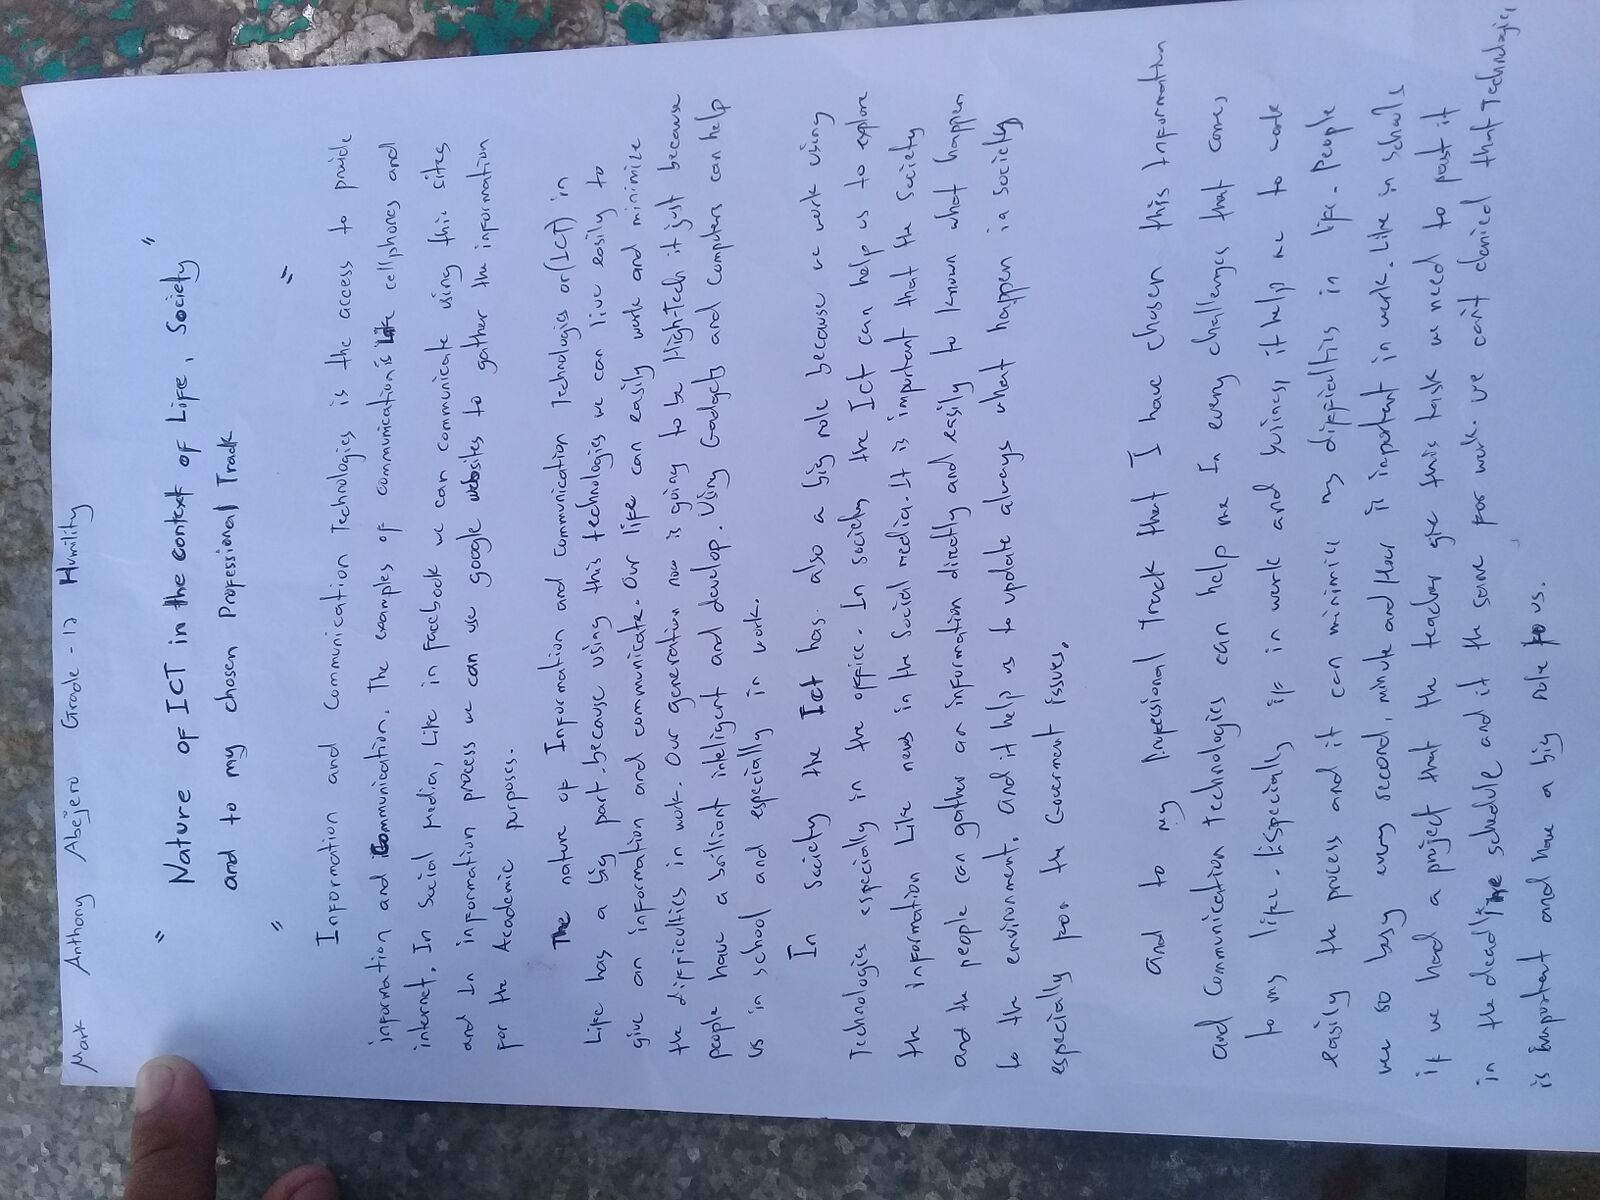 Mark Anthony Abejero Grade - 12 Humility
" Nature of ICT in the context of Life, Society "
" and to my chosen Professional Track "
Information and Communication Technologies is the access to provide
information and Communication. The examples of communication is like cellphones and
internet. In Social Media, Like in Facebook we can communicate using this sites
and In information process we can use google websites to gather the information
for the Academic purposes.
The nature of Information and Communication Technologies or (ICT) in
Life has a big part because using this technologies we can live easily to
give an information and communicate. Our life can easily work and minimize
the difficulties in work. Our generation now is going to be High-Tech it just because
people have a brilliant inteligent and develop. Using Gadgets and Computers can help
us in school and especially in work.
In Society the Ict has also a big role because we work using
Technologies especially in the office. In society the Ict can help us to explore
the information Like news in the Social media. It is important that the society
and the people can gather an information directly and easily to known what happen
to the environment. and it help us to update always what happen in a society
especially for the Goverment Issues.
and to my Professional Track that I have chosen this Information
and Communication technologies can help me In every challenges that comes
to my life. Especially if in work and buisness it help me to work
easily the process and it can minimize my difficulties in life. People
was so busy every second, minute and hour is important in work. Like in schools
if we had a project that the teacher give this task we need to past it
in the deadline schedule and it the same for work. we can't denied that Technologies
is important and have a big Role to us.